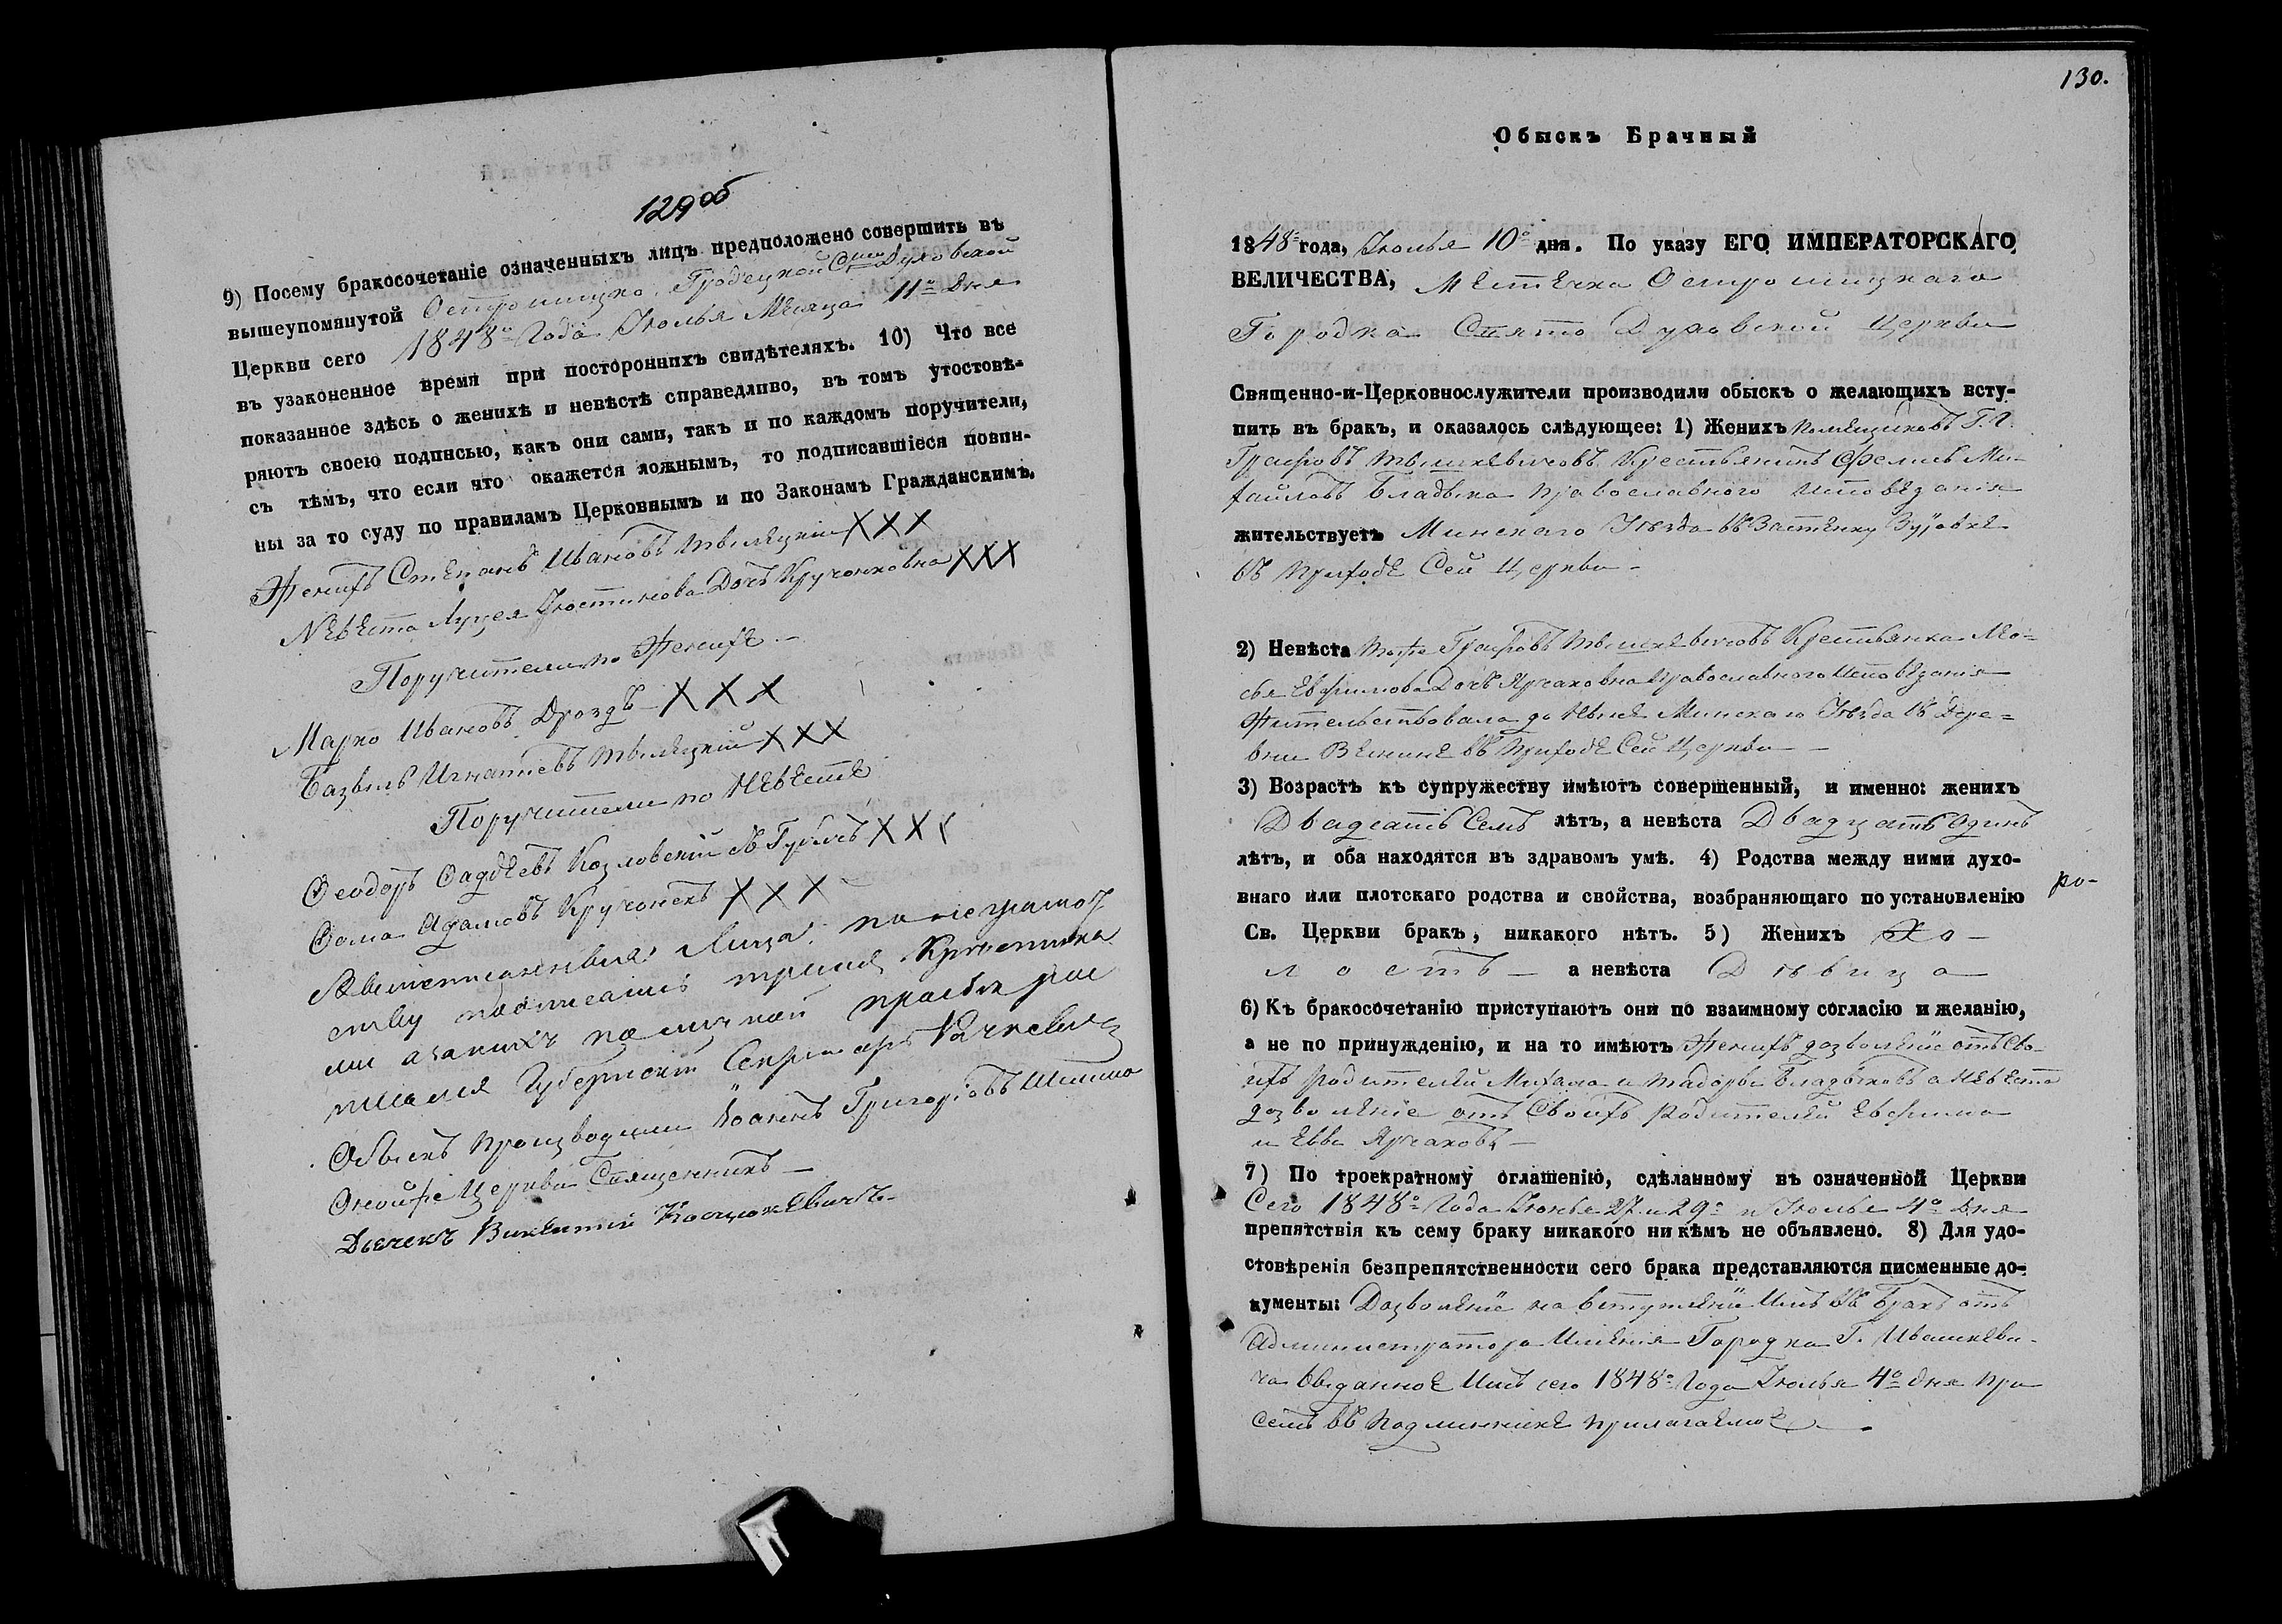 129 об
9) Посему бракосочетаніе означенныхъ лицъ предположено совершить въ
вышеупомянутой Острошицко Гродецкой Свято Духовской
Церкви сего 1848го Года Іюлья Месяца 11го Дня
въ узаконенное время при постороннихъ свидѣтеляхъ. 10) Что все
показанное здѣсь о женихѣ и невѣстѣ справедливо, въ томъ утостовѣ-
ряютъ своею подписью, какъ они сами, такъ и по каждомъ поручители,
съ тѣмъ, что если что окажется ложнымъ, то подписавшіеся повин-
ны за то суду по правиламъ Церковнымъ и по Законамъ Гражданскимъ,
Женихъ Степанъ Ивановъ XXX
Невеста Луцея Іюстинова Дочь Кручонковна XXX
Поручители по Женихе
Марко Ивановъ Дроздъ XXX
Базыль Игнатіевъ XXX
Поручители по Невесте
Ѳеодоръ Ѳадѣевъ Козловскій XXX
Ѳома Адамовъ Кручонекъ XXX
Вышеписанныя Лица по неграмот
ству подписались тремя Крыстика
ми а за нихъ по личной прозбѣ рос
писался Губернскій Секретарь
Обыскъ производили Іоаннъ Григоріовъ
Оной же Церкви Священникъ
Дьячекъ Викентій
130.
Обыскъ Брачный
1848го года, Іюлья 10го дня. По указу ЕГО ИМПЕРАТОРСКАГО
ВЕЛИЧЕСТВА, Местечка Острошицкаго
Городка Свято Духовской Церкви
Священно-и-Церковнослужители производили обыскъ о желающихъ всту-
пить въ бракъ, и оказалось слѣдующее: 1) Женихъ Помещиковъ Г. Г.
Графовъ Тышкевичовъ Крестьянинъ Феликъ Ми-
хайловъ Бладыко православного исповеданія
жительствуетъ Минскаго Уѣзда въ Застенку
въ Приходе Сей Церкви
2) Невѣста техъ же Графовъ Тышкевичовъ Крестьянка Мо-
Евфимова Дочь Ярчаковна православного исповеданія
Жительствовала до Ныне Минскаго Уѣзда въ Дере-
вни въ Приходе Сей Церкви
3) Возрастъ къ супружеству имѣютъ совершенный, и именно: женихъ
Двадцать Семь лѣтъ, а невѣста Двадцать Одинъ
лѣтъ, и оба находятся въ здравомъ умѣ. 4) Родства между ними духо-
внаго или плотскаго родства и свойства, возбраняющаго по установленію
Св. Церкви бракъ, никакого нѣтъ. 5) Женихъ Хо-
лостъ а невѣста Дѣвица
6) Къ бракосочетанію приступаютъ они по взаимному согласію и желанію,
а не по принужденію, и на то имѣютъ Женихъ дозволеніе отъ Сво-
ихъ родителей Михала и Тадоры Бладыковъ а Невеста
дозволеніе отъ Своихъ родителей Евфима
и Евы Ярчаковъ
7) По троекратному оглашенію, сдѣланному въ означенной Церкви
Сего 1848го Года Іюнья 27 и 29го и Іюлья 4го Дня
препятствія къ сему браку никакого ни кѣмъ не объявлено. 8) Для удо-
стовѣренія безпрепятственности сего брака представляются писменные до-
кументы: Дозволеніе на вступленіе Имъ въ Бракъ отъ
Администратора Именія Городка Г. Ивашкеви-
ча выданное Имъ сего 1848го Года Іюлья 4го дня при
семъ въ подлиннике прилагаемое